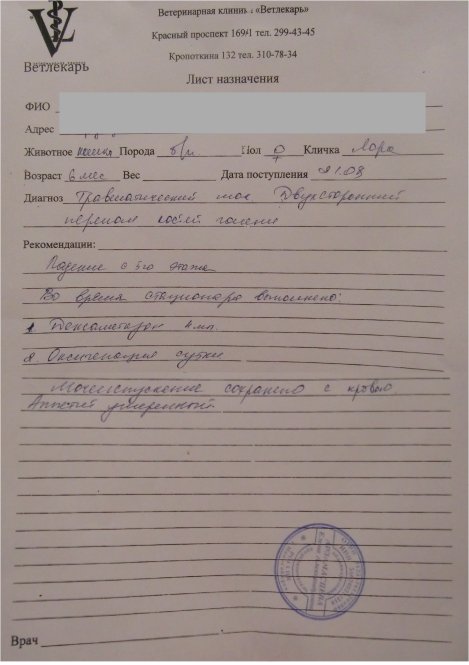 Ветеринарная клиника «Ветлекарь»
Красный проспект 169/1 тел. 299-43-45
Кропоткина 132 тел. 310-78-34
VL
Ветлекарь
Лист назначения
ФИО
Адрес
Животное кошка Порода б/п Пол ♀ Кличка Лора
Возраст 6 мес Вес Дата поступления 21.08
Диагноз Травматический шок. Двухсторонний
перелом костей голени
Рекомендации:
Падение с 5го этажа
Во время стационара выполнено:
1. Дексаметазон 4 мл.
2. Оксигенация сутки
Мочеиспускание сохранено с кровью.
Аппетит умеренный.
Врач